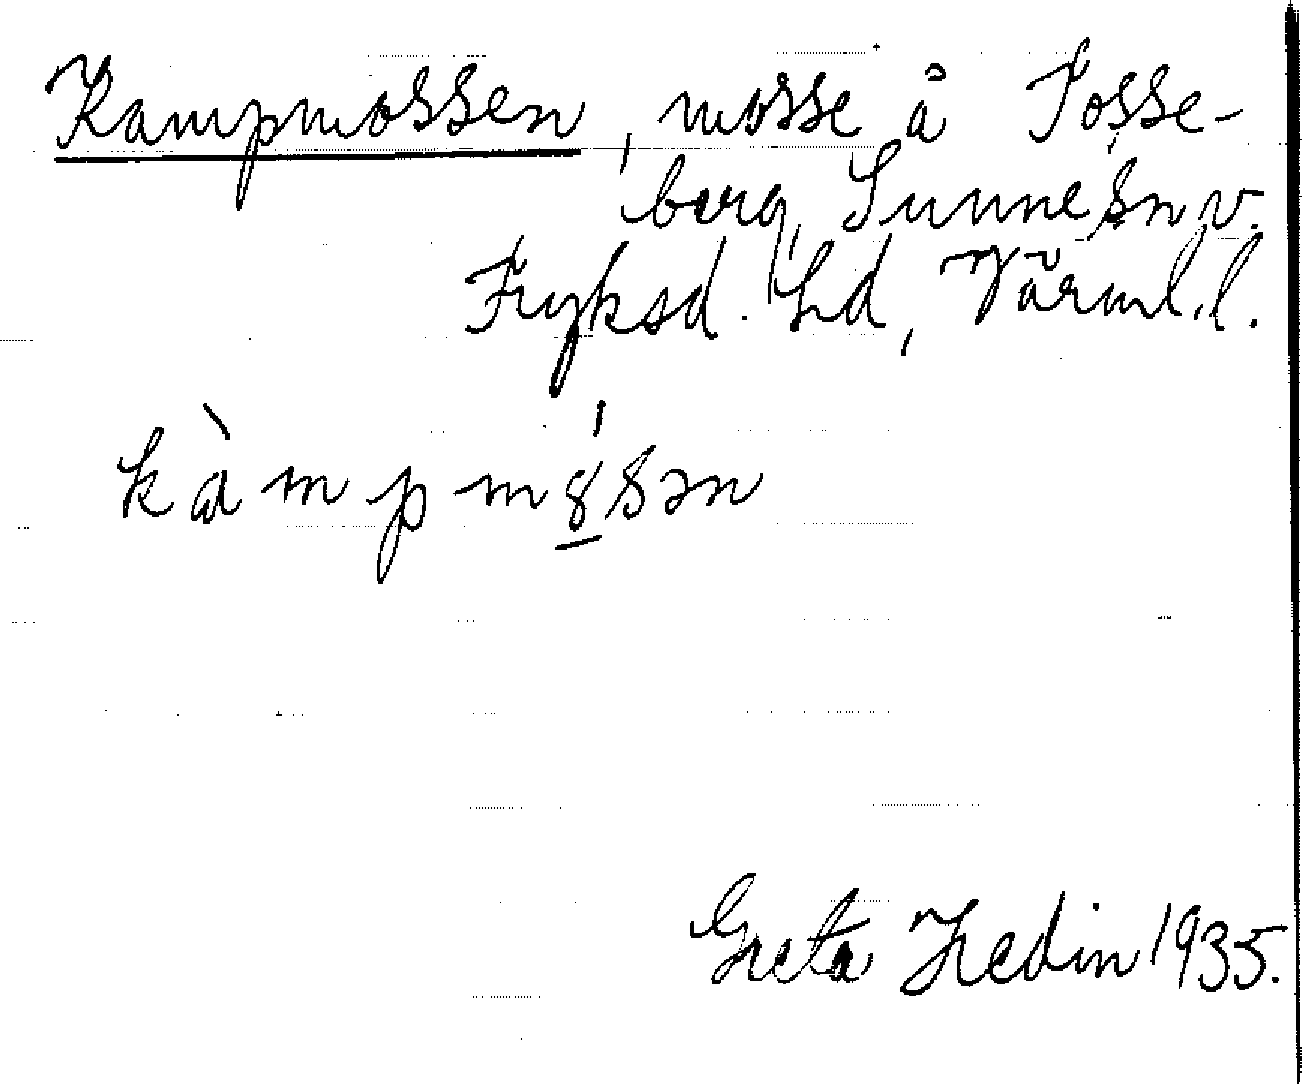 Kampmossen, mosse å Fosse-
berg, Sunne sn v.
Fryksd. hd, Värml. l.
kàmpmo̲sən
Greta Hedin 1935.